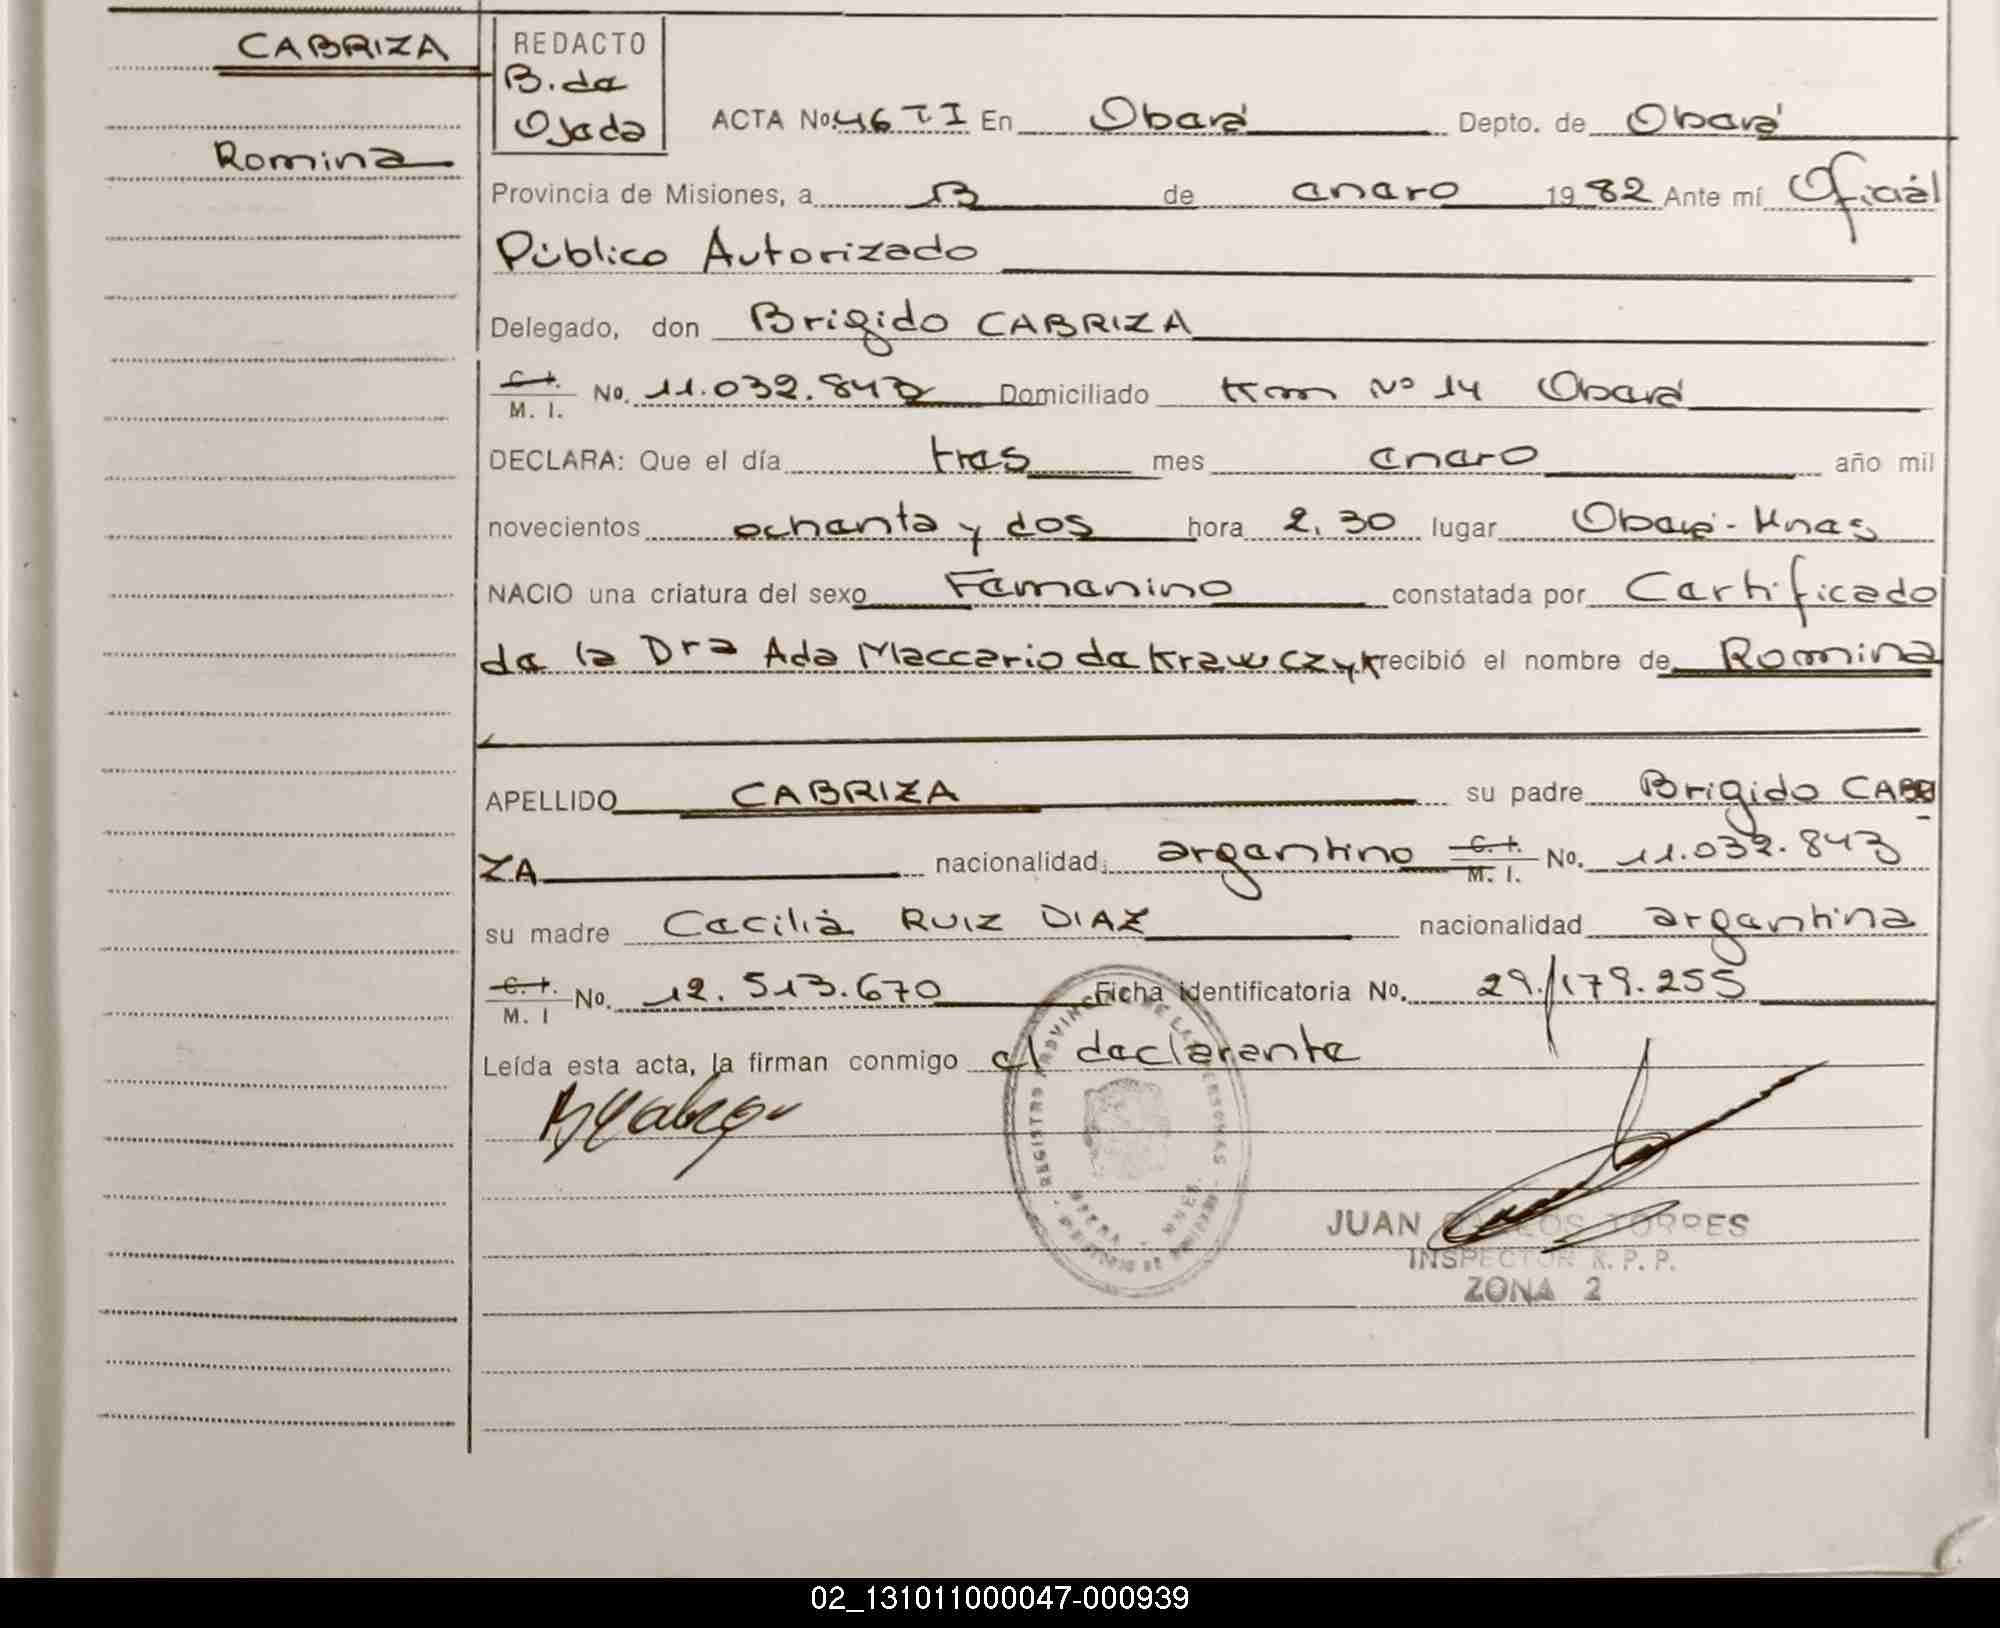 CABRIZA
Romina
REDACTO
B. de
Ojeda
ACTA No. 46 TI En Oberá Depto. de Oberá
Provincia de Misiones, a 13 de enero 1982 Ante mí Oficial
Público Autorizado
Delegado, don Brigido CABRIZA
C. I.
M. I. No. 11.032.843 Domiciliado Km Nº 14 Oberá
DECLARA: Que el día tres mes enero año mil
novecientos ochenta y dos hora 2.30 lugar Oberá - Mnes
NACIO una criatura del sexo Femenino constatada por Certificado
de la Dra Ada Maccario de Krawczyk recibió el nombre de Romina
APELLIDO CABRIZA su padre Brigido CABRI
ZA nacionalidad; argentino C. I. M. I. No. 11.032.843
su madre Cecilia RUIZ DIAZ nacionalidad argentina
C. I.
M. I No. 12.513.670 Ficha identificatoria No. 29./179.255
Leída esta acta, la firman conmigo el declarante
REGISTRO PROVINCIAL DE LAS PERSONAS
OBERA - MNES.
JUAN CARLOS TORRES
INSPECTOR R. P. P.
ZONA 2
02_131011000047-000939